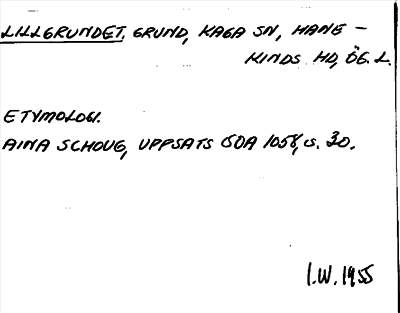 LILLGRUNDET. GRUND, KAGA SN, HANE-
KINDS HD, ÖG. L.
ETYMOLOGI.
AINA SCHOUG, UPPSATS OOA 1058, s. 30.
I.W. 1955